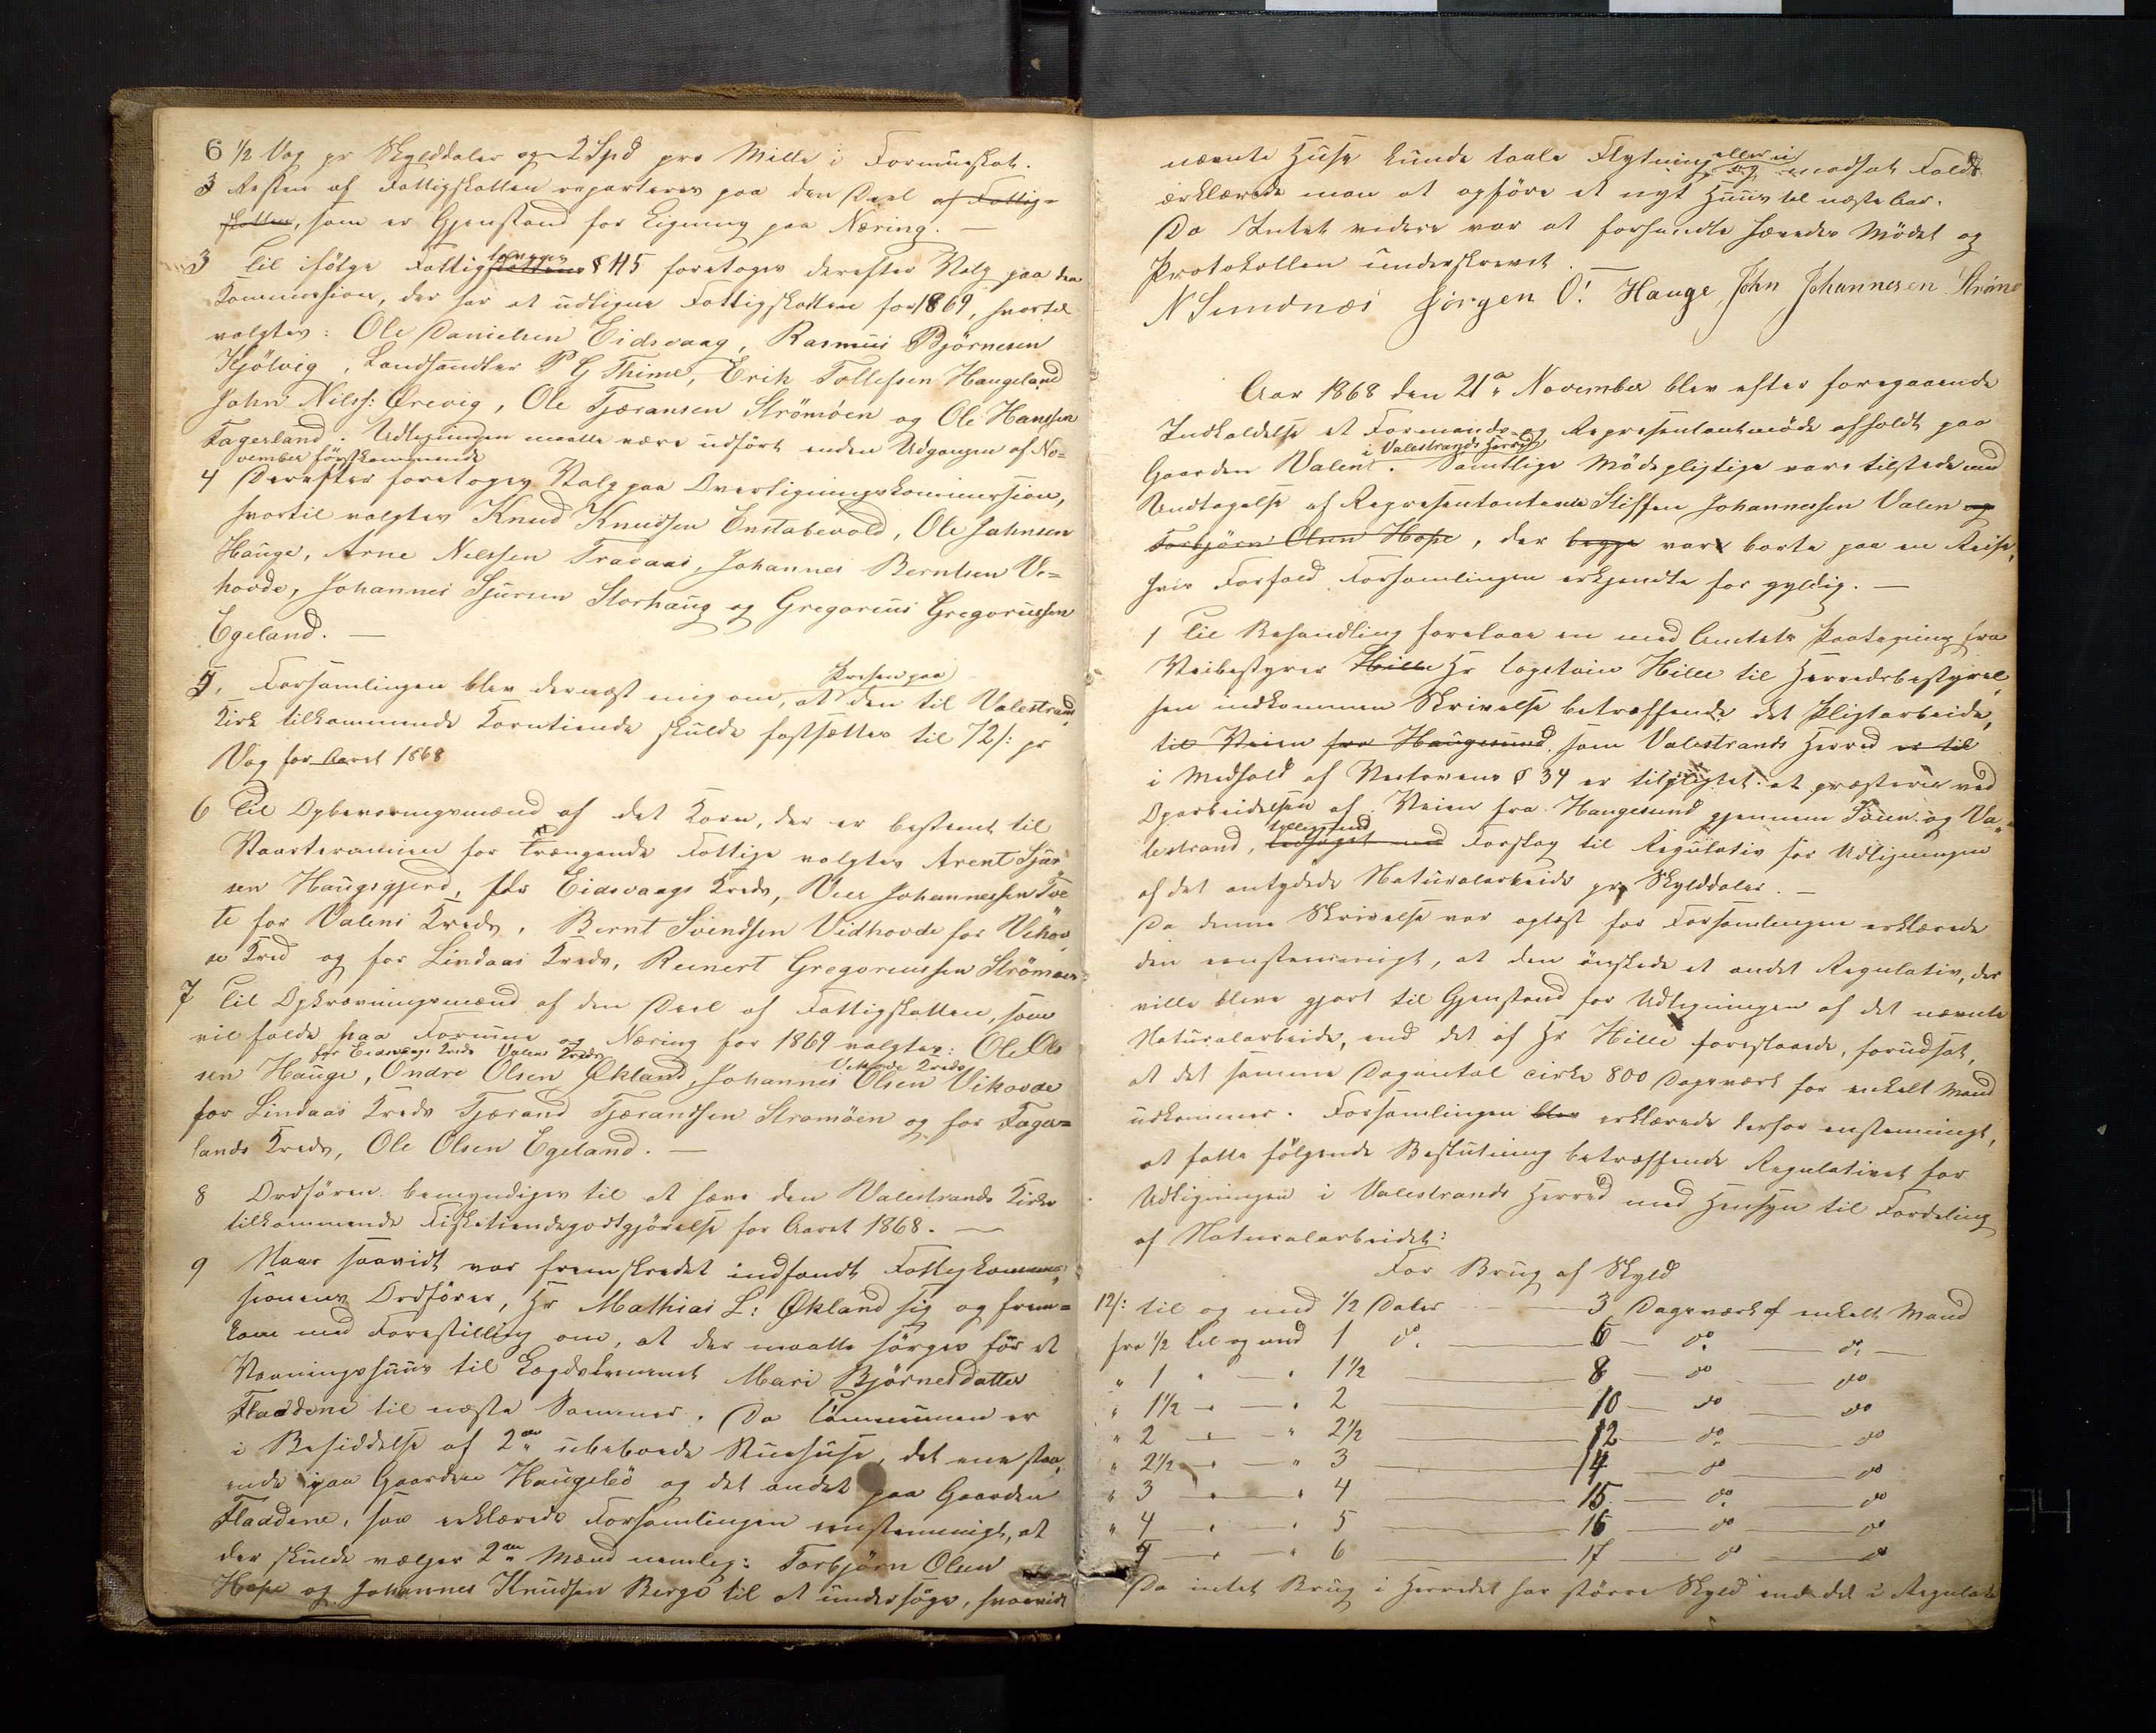 6 ½ Vog pr Skylddaler og 2 Spd pro Mille i Formueskat.
3 Resten af Fattigskatten reparteres paa den Deel af Fattig-
skatten, som er Gjenstand for Ligning paa Næring. —
3 Til ifölge Fattigskattens lovens § 115 foretoges derefter Valg paa den
Kommission, der har at udligne Fattigskatten for 1869, hvortil
valgtes: Ole Danielsen Eidsvaag, Rasmus Björnesen
Kjölvig, Landhandler P G Thime, Erik Tollefsen Haugeland
John Nilss: Ørevig, Ole Tjæransen Strömöen og Ole Hanssen
Fagerland. Udligningen maatte være udført inden Udgangen af No-
vember förstkommende
4 Derefter foretoges Valg paa Overligningskommission,
hvortil valgtes Knud Knudsen Enstabevold, Ole Johnsen
Hauge, Arne Nilssen Travaas, Johannes Berntsen Ve-
hovde, Johannes Sjursen Storhaug og Gregorius Gregoriussen
Egeland. —
5, Forsamlingen blev dernæst enig om, at Prisen paa den til Valestrand
Kirke tilkommende Korntiende skulde fastsættes til 72 /: pr
Vog for Aaret 1868
6 Til Opbevaringsmænd af det Korn, der er bestemt til
Vaarterminen for trængende Fattige valgtes Arent Sjur
sen Haugsgjerd, for Eidsvaags Kreds, Vier Johannessen Tve
te for Valens Kreds, Bernt Svendsen Vidhovde for Vihov
de Kred og for Lindaas Kreds, Reinert Gregoriussen Strömøen
7 Til Opkrævningsmænd af den Deel af Fattigskatten, som
vil falde paa Formue og Næring for 1869 valgtes: Ole Ol
for Eidsvaags Kreds Valen Kreds Vihovde Kreds
sen Hauge, Ondre Olsen Økland, Johannes Olsen Vihovde
for Lindaas Kreds Tjærand Tjærandsen Stromöen og for Fager-
lands Kreds, Ole Olsen Egeland. —
8 Ordføren bemyndiges til at hæve den Valestrands Kirke
tilkommende Fisketiendegodtgjörelse for Aaret 1868. —
9 Naar saavidt var fremskredet indfandt Fattigkommis
sionens Ordförer, Hr Mathias L: Økland sig og frem-
kom med Forestilling om, at der maatte sörges för et
Vaaningshuus til Lægdslemmet Mari Björnesdatter
Flaadene til næste Sommer. Da Communen er
i Besiddelse af 2de ubeboede Stuehuse, det ene staa
ende paa Gaarden Haugsbö og det andet paa Gaarden
Flaadene, saa erklærede Forsamlingen eenstemmigt, at
der skulde vælges 2de Mænd nemlig: Torbjörn Olsen
Hope og Johannes Knudsen Berge til at undersöge, hvorvidt
nævnte Huse kunde taale Flytning eller ei i modsat Fald
erklærede man at opföre et nyt Huus til næste Aar.
Da Intet videre var at forhandle hævedes Mödet og
Protokollen underskrevet.
N Simdnæs Jörgen O! Hauge John Johannesen Ström
Aar 1868 den 21de November blev efter foregaaende
Indkaldelse et Formands- og Repræsentantmöde afholdt paa
Gaarden Valen i Valestrands Herred. Samtlige Mödepligtige vare tilstede med
Undtagelse af Repræsentanterne Stiffen Johannessen Valen og
Torbjörn Olsen Hope, der begge var borte paa en Reise,
hvis Forfald Forsamlingen erkjendte for gyldig. —
1 Til Behandling foretoges en med Amtets Paategning fra
Veibestyrer Hille Hr Capetain Hille til Herredsbestyrel
sen indkommen Skrivelse betræffende det Pligtarbeide,
til Veien fra Haugesund, som Valestrands Herred er til
i Medhold af Veilovens § 34 er tilpligtet at præstere ved
Oparbeidelsen af Veien fra Haugesund gjennem Föien og Va
lestrand, ledsaget med tilligemed Forslag til Regulativ for Udligningen
af det antydede Naturalarbeide pr Skylddaler. —
Da denne Skrivelse var oplæst for Forsamlingen erklærede
den eenstemmigt, at den önskede et andet Regulativ, der
ville blive gjort til Gjenstand for Udligningen af det nævnte
Naturalarbeide, end det af Hr Hille foreslaaede, forudsat,
at det samme Dagantal cirka 800 Dagsværk for enkelt Mand
udkommer. Forsamlingen blev erklærede derfor enstemmigt,
at fatte fölgende Beslutning betræffende Regulativet for
Udligningen i Valestrands Herred med Hensyn til Fordeling
af Naturalarbeidet:
For Brug af Skyld
12 /: til og med ½ Daler — 3 Dagsværk af enkelt Mand
fra ½ til og med 1 do. — 6 — do. — do. —
" 1 " — " 1½ — 8 — do — do
" 1½ " — " 2 — 10 — do — do
" 2 — " — " 2½ — 12 — do — do
" 2½ " — " 3 — 14 — do — do
" 3 — " — " 4 — 15 — do — do
" 4 — " — " 5 — 16 — do — do
5 — " — " 6 — 17 — do — do
Da intet Brug i Herredet har större Skyld end det i Regulati